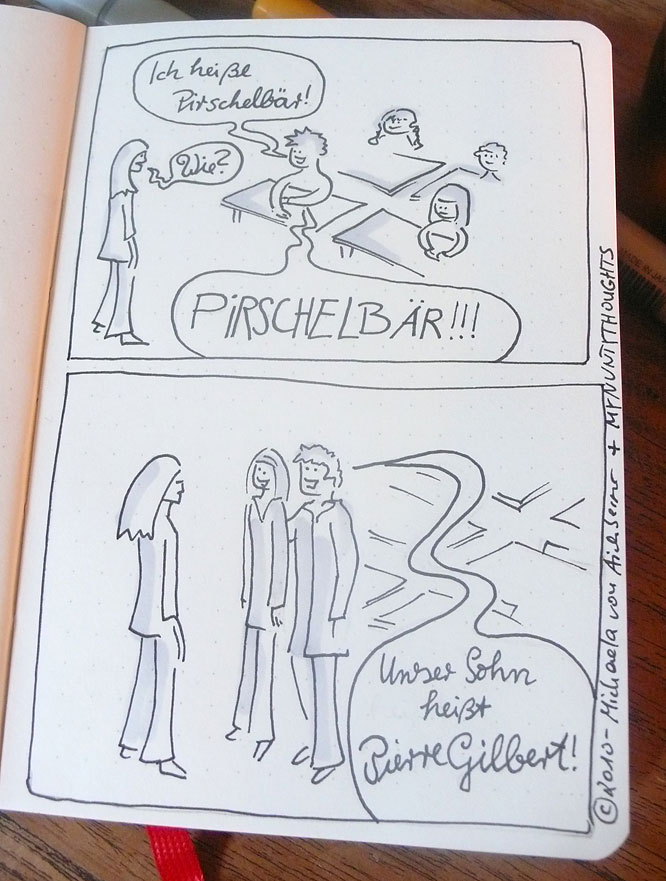 Ich heiße
Pirschelbär!
Wie?
PIRSCHELBÄR!!!
Unser Sohn
heißt
Pierre Gilbert!
©2010 - Michaela von Aichberger + MYNUNTYTHOUGHTS